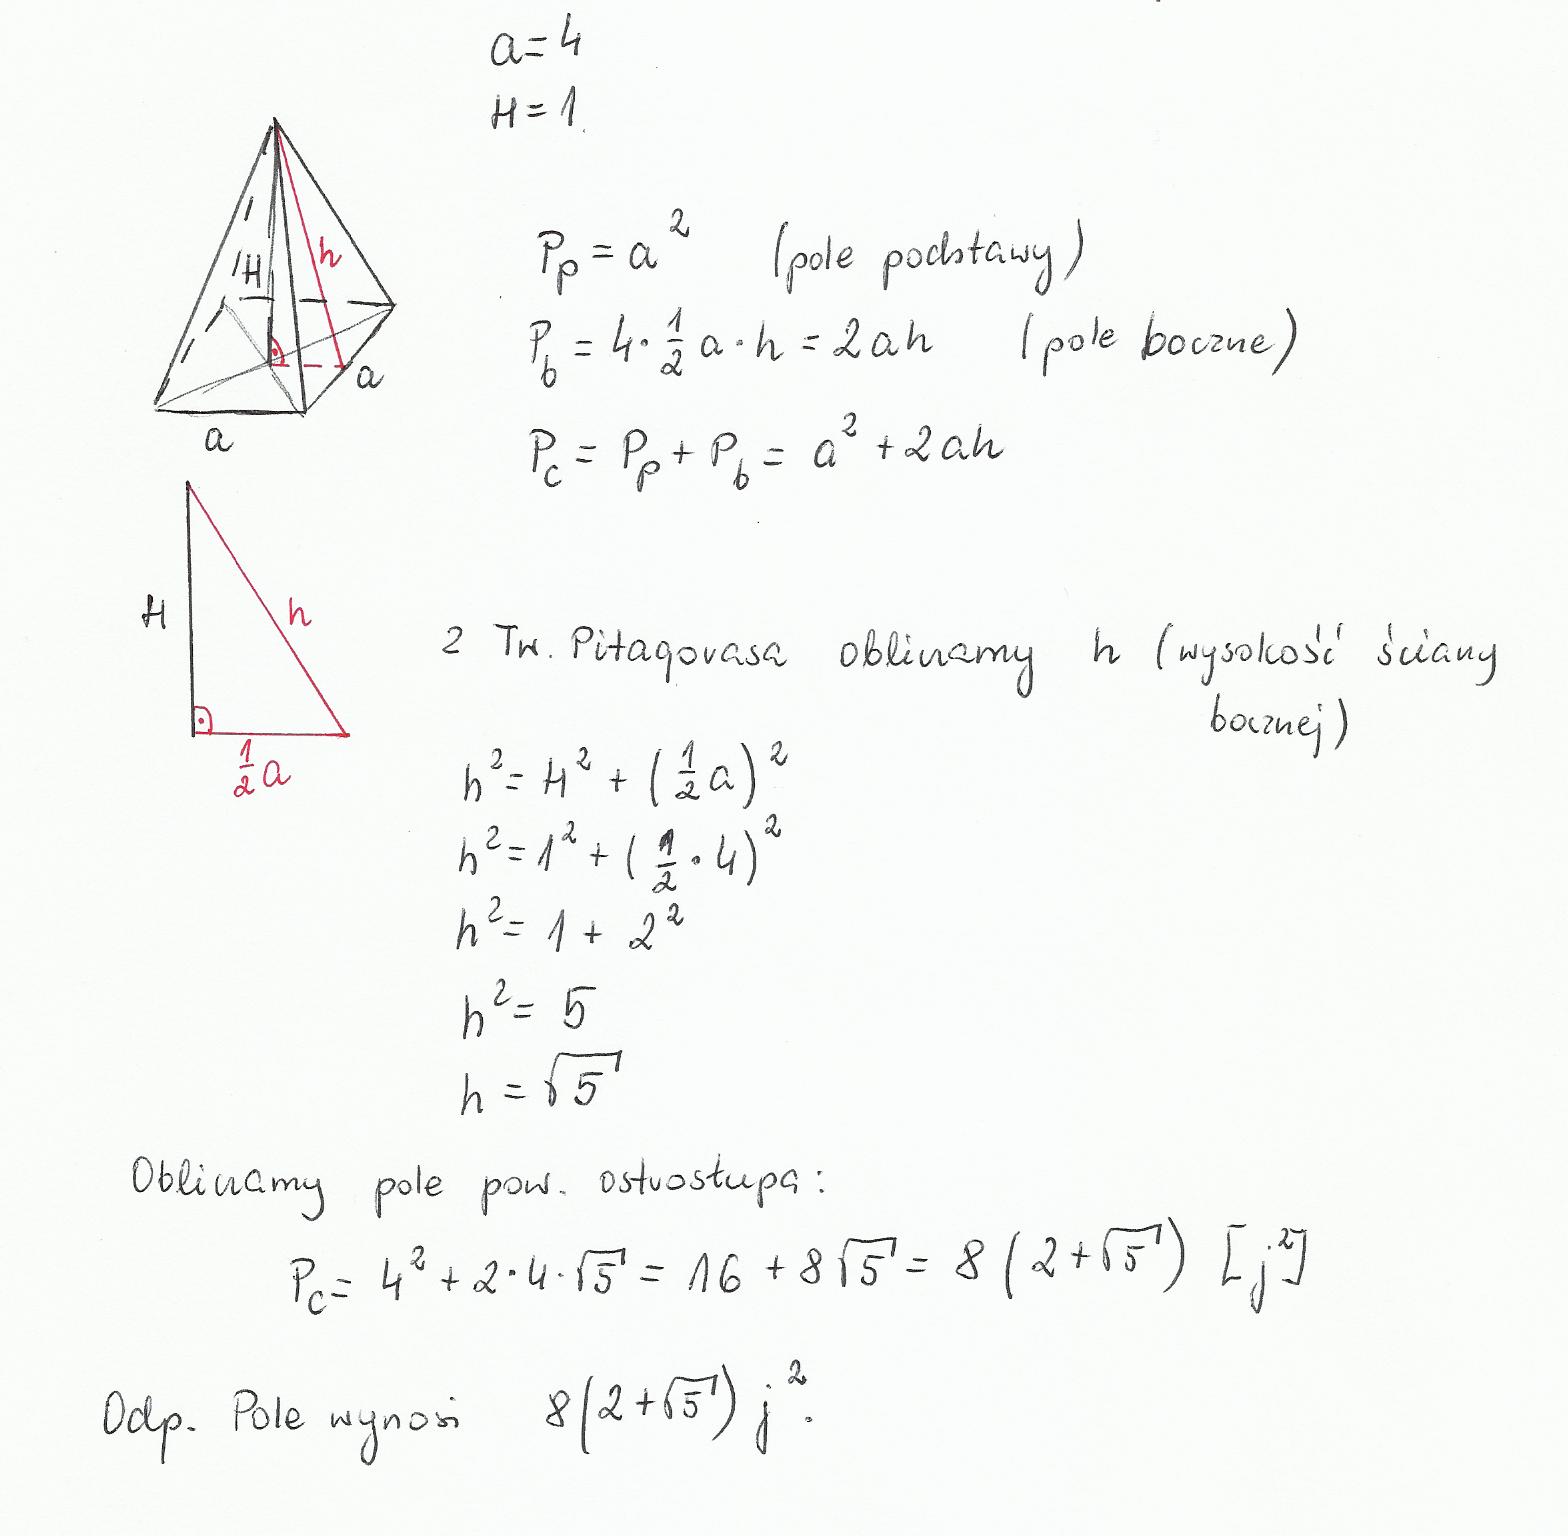 a = 4
H = 1
H
h
a
a
P_p = a² (pole podstawy)
P_b = 4 · 1/2 a · h = 2ah (pole boczne)
P_c = P_p + P_b = a² + 2ah
H
h
1/2 a
z Tw. Pitagorasa obliczamy h (wysokość ściany
bocznej)
h² = H² + (1/2 a)²
h² = 1² + (1/2 · 4)²
h² = 1 + 2²
h² = 5
h = √5
Obliczamy pole pow. ostrosłupa:
P_c = 4² + 2 · 4 · √5 = 16 + 8√5 = 8(2 + √5) [j²]
Odp. Pole wynosi 8(2 + √5) j².